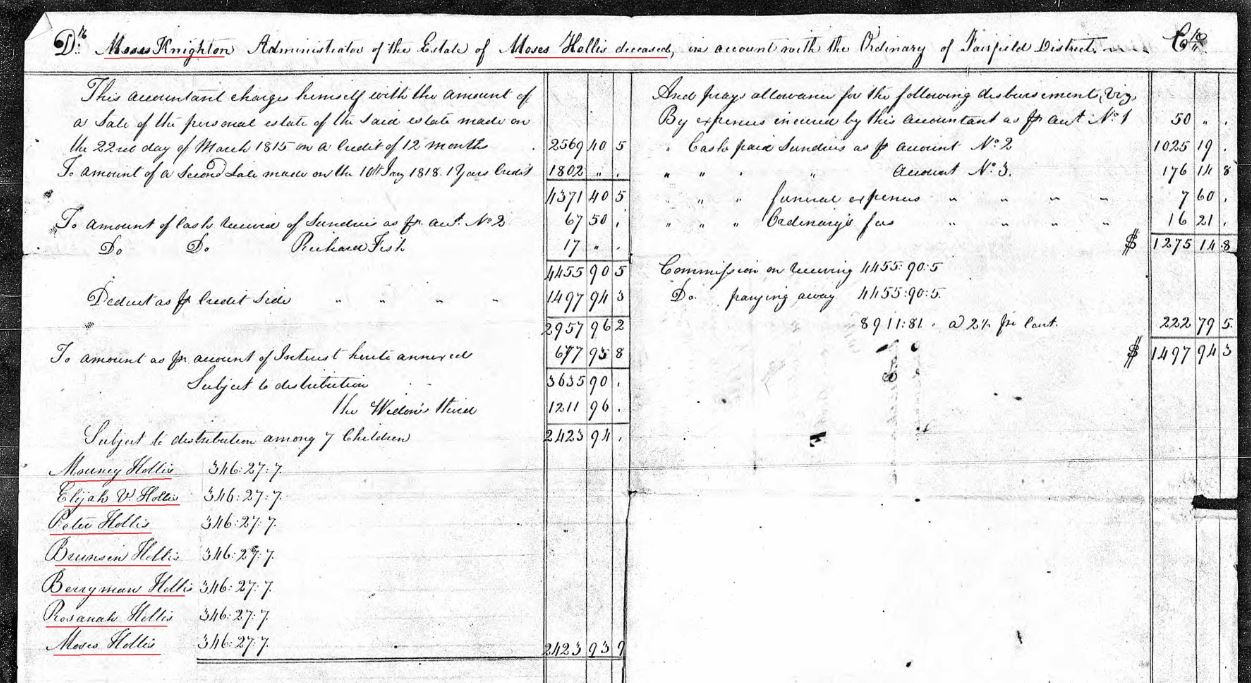 Dr. Moses Knighton Administrator of the Estate of Moses Hollis deceased, in account with the Ordinary of Fairfield District. Cr.
This accountant charges himself with the amount of
a Sale of the personal estate of the said estate made on
the 22nd day of March 1815 on a Credit of 12 months 2569 40 5
To amount of a Second Sale made on the 10th Jany 1818. 1 Years Credit 1802 " .
4371 40 5
To amount of Cash received of Sundries as pr. acct. No. 2 67 50 .
Do Do Richard Fish 17 " .
4455 90 5
Deduct as pr Credit Side " " " " 1497 94 3
2957 96 2
To amount as pr. account of Interest hereto annexed 677 93 8
Subject to distribution 3635 90 .
the Widow's third 1211 96 .
Subject to distribution among 7 Children 2423 94 .
Mouncy Hollis 346:27:7.
Elijah Hollis 346:27:7.
Peter Hollis 346:27:7.
Brunson Hollis 346:27:7.
Berryman Hollis 346:27:7.
Rosanah Hollis 346:27:7.
Moses Hollis 346:27:7. 2423 93 9
And prays allowance for the following disbursement, Viz,
By expences incured by this accountant as pr acct No. 1 50 " .
" Cash paid Sundries as pr account No. 2 1025 19 .
" " " " account No. 3. 176 14 8
" " " funeral expences " " " " 7 60 .
" " " Ordinary's fees " " " " 16 21 .
$ 1275 14 8
Commission on receiving 4455:90:5
Do. paying away 4455:90:5.
8911:81. a 2½ pr Cent. 222 79 5.
$ 1497 94 3